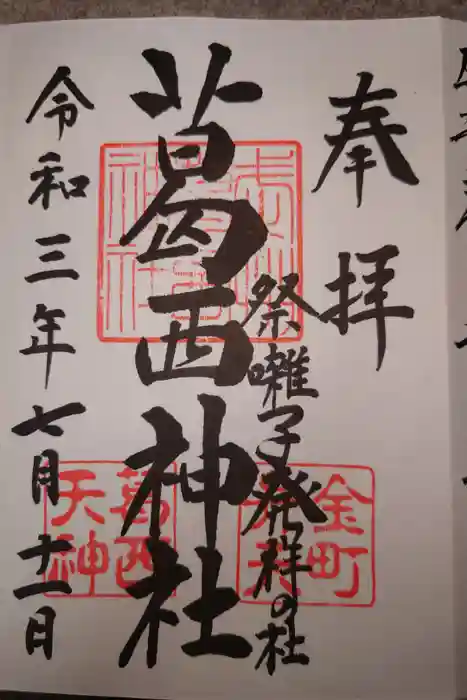 奉拝
祭囃子発群の社
葛西神社
令和三年七月十一日
葛西神社
金町
葛西天神